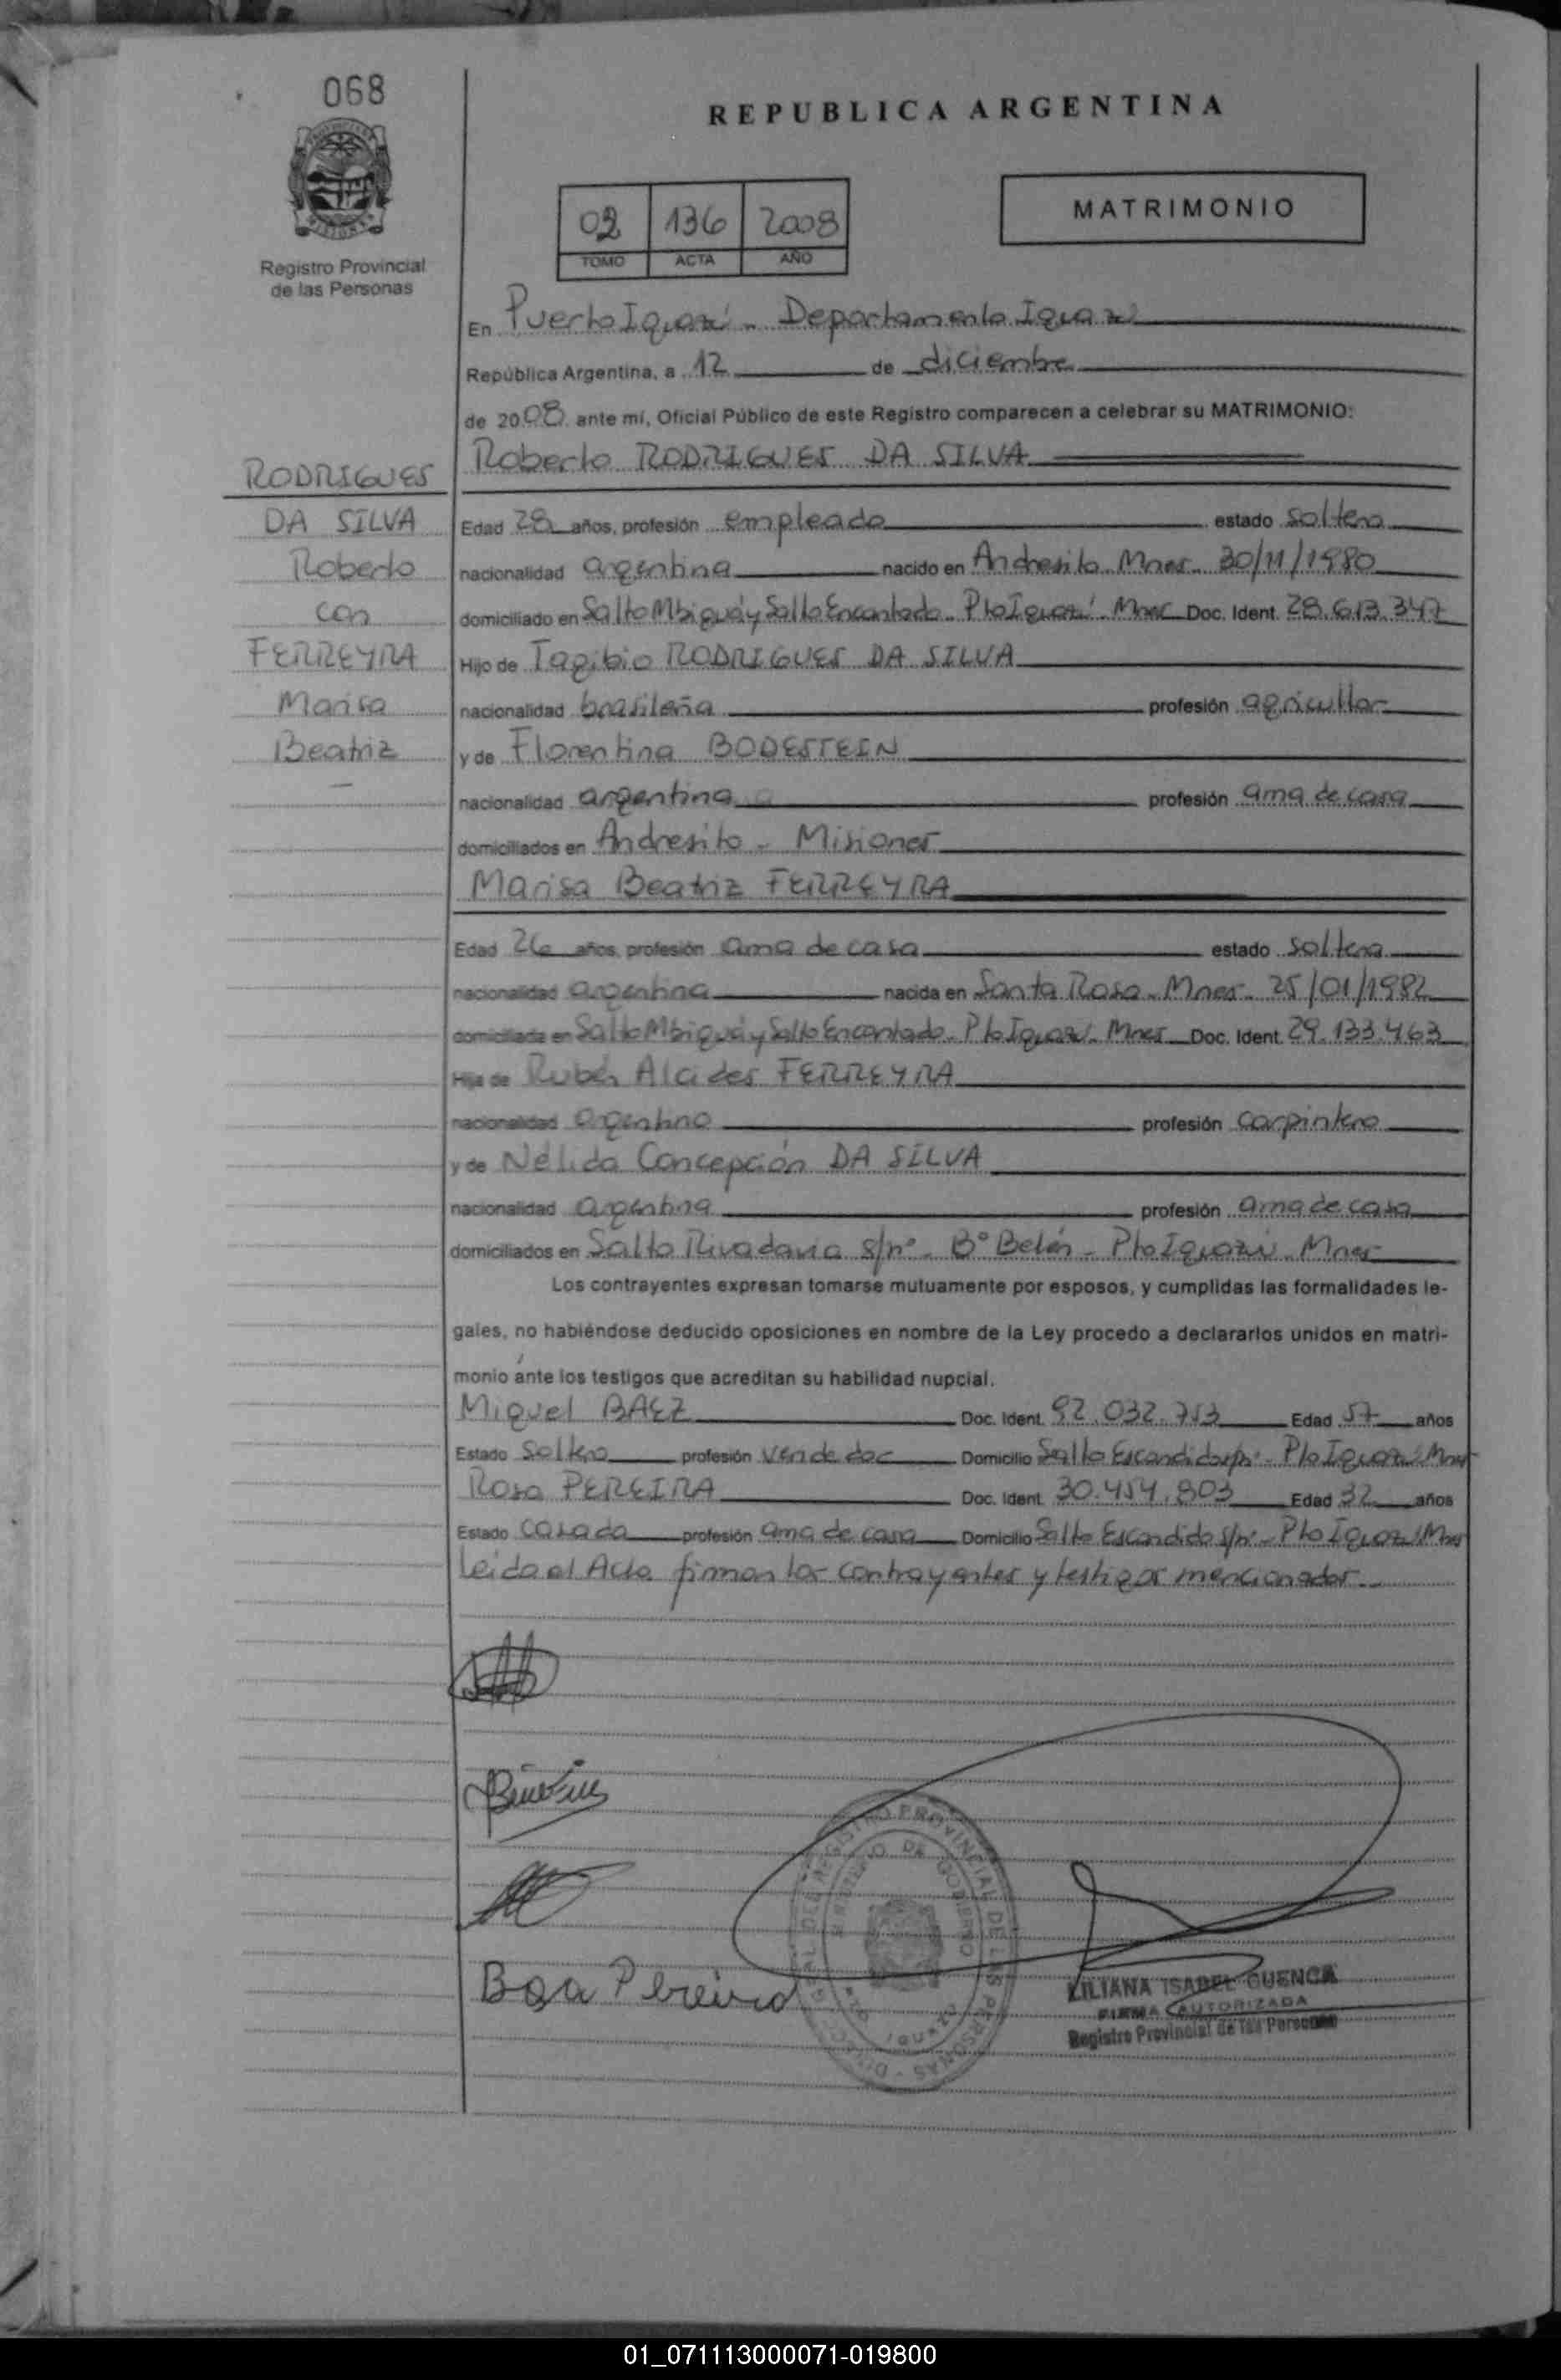 068
REPUBLICA ARGENTINA
02 136 2008
TOMO ACTA AÑO
MATRIMONIO
Registro Provincial
de las Personas
En Puerto Iguazú - Departamento Iguazú
República Argentina, a 12 de diciembre
de 2008 ante mí, Oficial Público de este Registro comparecen a celebrar su MATRIMONIO:
Roberto RODRIGUES DA SILVA
RODRIGUES
DA SILVA
Roberto
con
FERREYRA
Marisa
Beatriz
Edad 28 años, profesión empleado estado soltero
nacionalidad argentina nacido en Andresito - Mnes - 30/11/1980
domiciliado en Salto Mbiguá y Salto Encantado - Pto Iguazú - Mnes Doc. Ident. 28.613.347
Hijo de Tagibio RODRIGUES DA SILVA
nacionalidad brasileña profesión agricultor
y de Florentina BODESTEIN
nacionalidad argentina profesión ama de casa
domiciliados en Andresito - Misiones
Marisa Beatriz FERREYRA
Edad 26 años, profesión ama de casa estado soltera
nacionalidad argentina nacida en Santa Rosa - Mnes - 25/01/1982
domiciliada en Salto Mbiguá y Salto Encantado - Pto Iguazú - Mnes Doc. Ident. 29.133.463
Hija de Rubén Alcides FERREYRA
nacionalidad argentino profesión carpintero
y de Nélida Concepción DA SILVA
nacionalidad argentina profesión ama de casa
domiciliados en Salto Rivadavia s/nº - Bº Belén - Pto Iguazú - Mnes
Los contrayentes expresan tomarse mutuamente por esposos, y cumplidas las formalidades le-
gales, no habiéndose deducido oposiciones en nombre de la Ley procedo a declararlos unidos en matri-
monio ante los testigos que acreditan su habilidad nupcial.
Miguel BAEZ Doc. Ident. 92.032.753 Edad 57 años
Estado soltero profesión vendedor Domicilio Salto Escondido s/nº - Pto Iguazú Mnes
Rosa PEREIRA Doc. Ident. 30.454.803 Edad 32 años
Estado casada profesión ama de casa Domicilio Salto Escondido s/nº - Pto Iguazú Mnes
Leída el Acta firman los contrayentes y testigos mencionados
Pereira
REGISTRO PROVINCIAL DE LAS PERSONAS
MINISTERIO DE GOBIERNO
LILIANA ISABEL CUENCA
FIRMA AUTORIZADA
Registro Provincial de las Personas
01_071113000071-019800